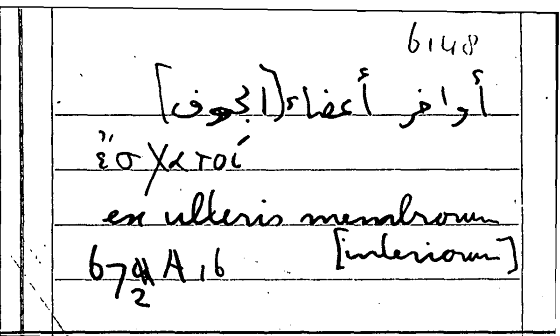 6148
أواخر أعضاء [الجوف]
ἔσχατοί
ex ulteris membrorum
[interiorum]
672 A 16